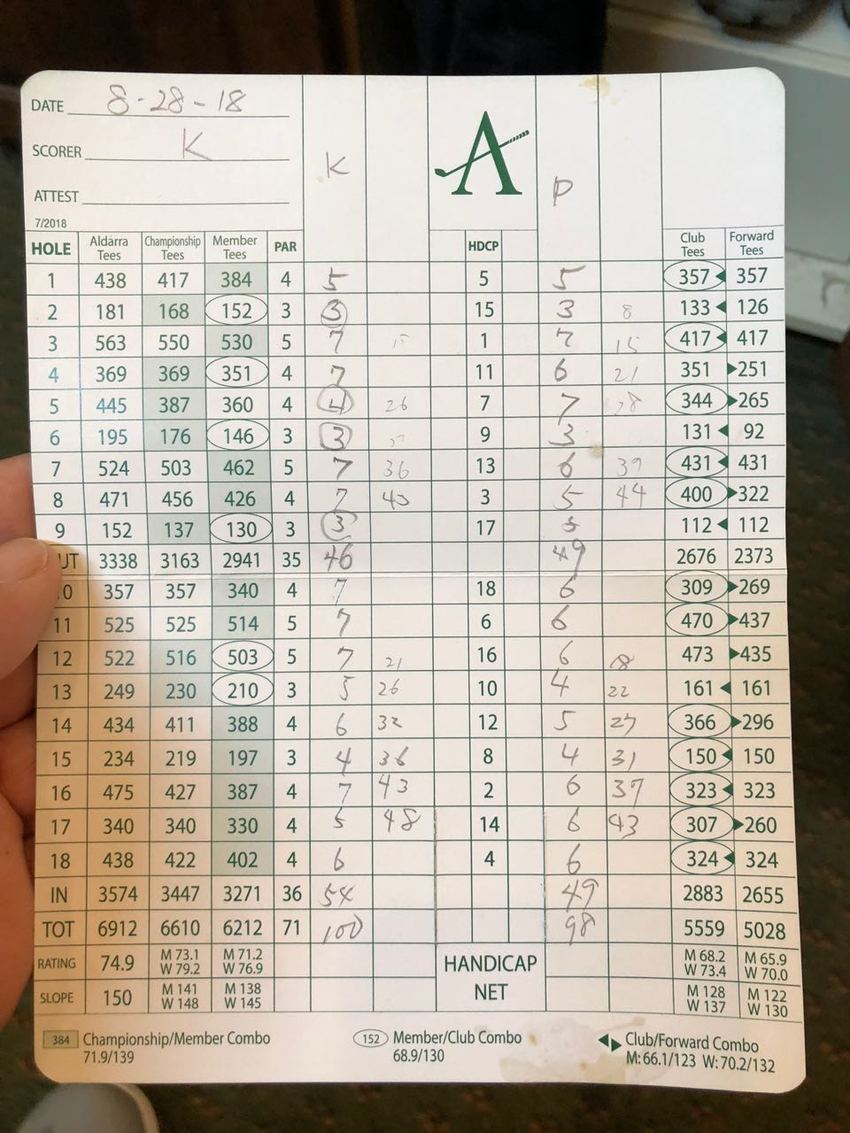 DATE 8-28-18
SCORER K
ATTEST
K A P
7/2018
HOLE Aldarra Tees Championship Tees Member Tees PAR HDCP Club Tees Forward Tees
1 438 417 384 4 5 5 5 357 357
2 181 168 152 3 3 15 3 8 133 126
3 563 550 530 5 7 15 1 7 15 417 417
4 369 369 351 4 7 11 6 21 351 251
5 445 387 360 4 4 26 7 7 28 344 265
6 195 176 146 3 3 9 3 131 92
7 524 503 462 5 7 36 13 6 39 431 431
8 471 456 426 4 7 43 3 5 44 400 322
9 152 137 130 3 3 17 5 112 112
UT 3338 3163 2941 35 46 49 2676 2373
0 357 357 340 4 7 18 6 309 269
11 525 525 514 5 7 6 6 470 437
12 522 516 503 5 7 21 16 6 18 473 435
13 249 230 210 3 5 26 10 4 22 161 161
14 434 411 388 4 6 32 12 5 27 366 296
15 234 219 197 3 4 36 8 4 31 150 150
16 475 427 387 4 7 43 2 6 37 323 323
17 340 340 330 4 5 48 14 6 43 307 260
18 438 422 402 4 6 4 6 324 324
IN 3574 3447 3271 36 54 49 2883 2655
TOT 6912 6610 6212 71 100 98 5559 5028
RATING 74.9 M 73.1 W 79.2 M 71.2 W 76.9 HANDICAP M 68.2 W 73.4 M 65.9 W 70.0
SLOPE 150 M 141 W 148 M 138 W 145 NET M 128 W 137 M 122 W 130
384 Championship/Member Combo 152 Member/Club Combo Club/Forward Combo
71.9/139 68.9/130 M: 66.1/123 W: 70.2/132